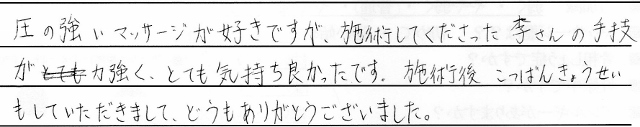 圧の強いマッサージが好きですが、施術してくださった李さんの手技
が力強く、とても気持ち良かったです。施術後こつばんきょうせい
もしていただきまして、どうもありがとうございました。